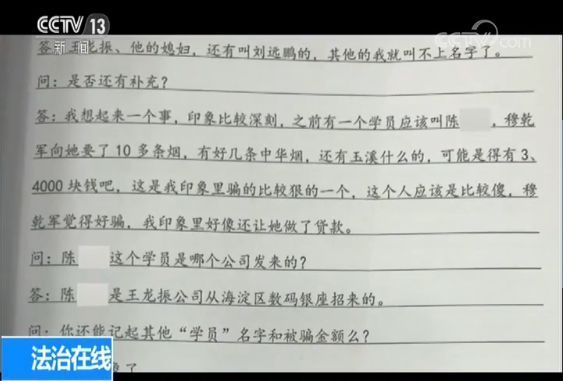 CCTV 13
新闻
CCTV.com
答: 王龙振、他的媳妇, 还有叫刘远鹏的, 其他的我就叫不上名字了。
问: 是否还有补充?
答: 我想起来一个事, 印象比较深刻, 之前有一个学员应该叫陈 , 穆乾
军向她要了 10 多条烟, 有好几条中华烟, 还有玉溪什么的, 可能是得有 3、
4000 块钱吧, 这是我印象里骗的比较狠的一个, 这个人应该是比较傻, 穆
乾军觉得好骗, 我印象里好像还让她做了贷款。
问: 陈 这个学员是哪个公司发来的?
答: 陈 是王龙振公司从海淀区数码银座招来的。
问: 你还能记起其他“学员”名字和被骗金额么?
法治在线